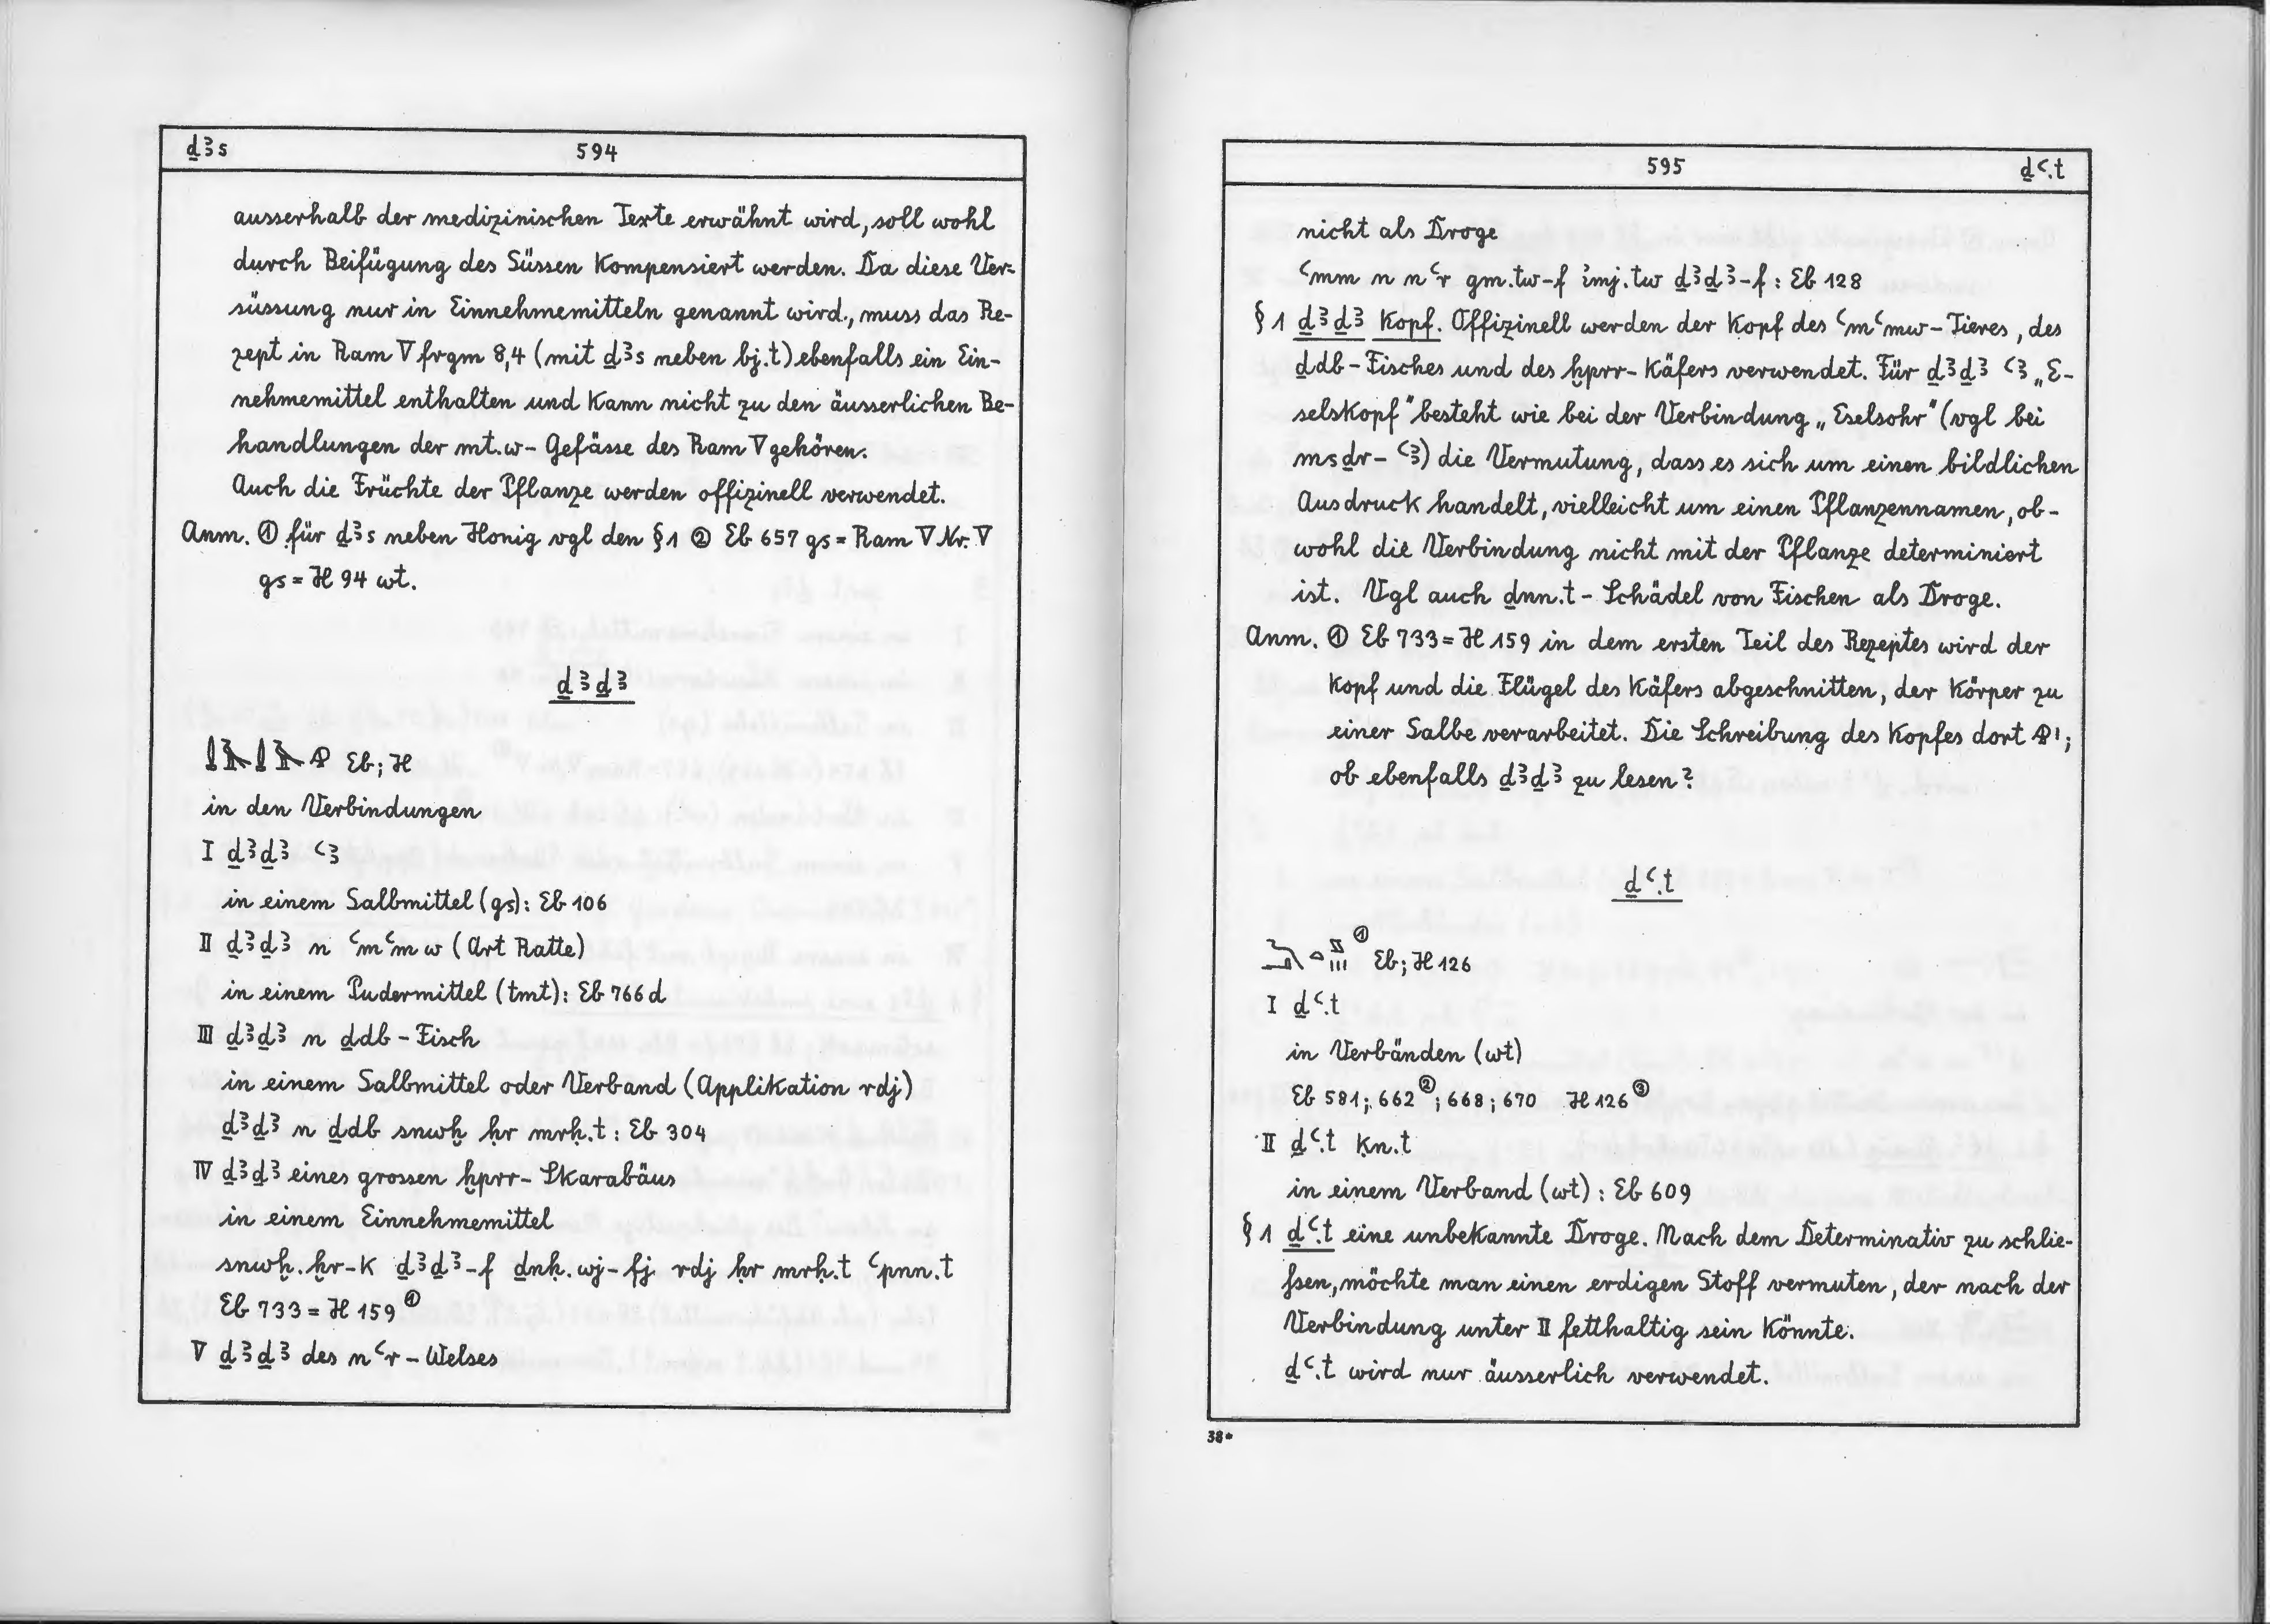 ḏꜣs 594
ausserhalb der medizinischen Texte erwähnt wird, soll wohl
durch Beifügung des Süssen kompensiert werden. Da diese Ver-
süssung nur in Einnehmemitteln genannt wird, muss das Re-
zept in Ram V frgm 8,4 (mit ḏꜣs neben bj.t) ebenfalls ein Ein-
nehmemittel enthalten und kann nicht zu den äusserlichen Be-
handlungen der mt.w-Gefässe des Ram V gehören.
Auch die Früchte der Pflanze werden offizinell verwendet.
Anm. ① für ḏꜣs neben Honig vgl den § 1 ② Eb 657 gs = Ram V Nr. V
gs = H 94 wt.
ḏꜣḏꜣ
Eb; H
in den Verbindungen
I ḏꜣḏꜣ ꜥꜣ
in einem Salbmittel (gs): Eb 106
II ḏꜣḏꜣ n ꜥmꜥmw (Art Ratte)
in einem Pudermittel (tmt): Eb 766 d
III ḏꜣḏꜣ n ḏdb-Fisch
in einem Salbmittel oder Verband (Applikation rdj)
ḏꜣḏꜣ n ḏdb snwḫ ḥr mrḥ.t: Eb 304
IV ḏꜣḏꜣ eines grossen ḫprr-Skarabäus
in einem Einnehmemittel
snwḫ.ḫr-k ḏꜣḏꜣ-f ḏnḥ.wj-fj rdj ḥr mrḥ.t ꜥpnn.t
Eb 733 = H 159 ①
V ḏꜣḏꜣ des nꜥr-Welses
595 ḏꜥ.t
nicht als Droge
ꜥmm n nꜥr gm.tw-f imj.tw ḏꜣḏꜣ-f: Eb 128
§ 1 ḏꜣḏꜣ Kopf. Offizinell werden der Kopf des ꜥmꜥmw-Tieres, des
ḏdb-Fisches und des ḫprr-Käfers verwendet. Für ḏꜣḏꜣ ꜥꜣ „E-
selskopf" besteht wie bei der Verbindung „Eselsohr" (vgl bei
msḏr-ꜥꜣ) die Vermutung, dass es sich um einen bildlichen
Ausdruck handelt, vielleicht um einen Pflanzennamen, ob-
wohl die Verbindung nicht mit der Pflanze determiniert
ist. Vgl auch ḏnn.t-Schädel von Fischen als Droge.
Anm. ① Eb 733 = H 159 in dem ersten Teil des Rezeptes wird der
Kopf und die Flügel des Käfers abgeschnitten, der Körper zu
einer Salbe verarbeitet. Die Schreibung des Kopfes dort 𓁶𓏤;
ob ebenfalls ḏꜣḏꜣ zu lesen?
ḏꜥ.t
① Eb; H 126
I ḏꜥ.t
in Verbänden (wt)
Eb 581; 662 ②; 668; 670 H 126 ③
II ḏꜥ.t ḳn.t
in einem Verband (wt): Eb 609
§ 1 ḏꜥ.t eine unbekannte Droge. Nach dem Determinativ zu schlie-
ssen, möchte man einen erdigen Stoff vermuten, der nach der
Verbindung unter II fetthaltig sein könnte.
ḏꜥ.t wird nur äusserlich verwendet.
38*